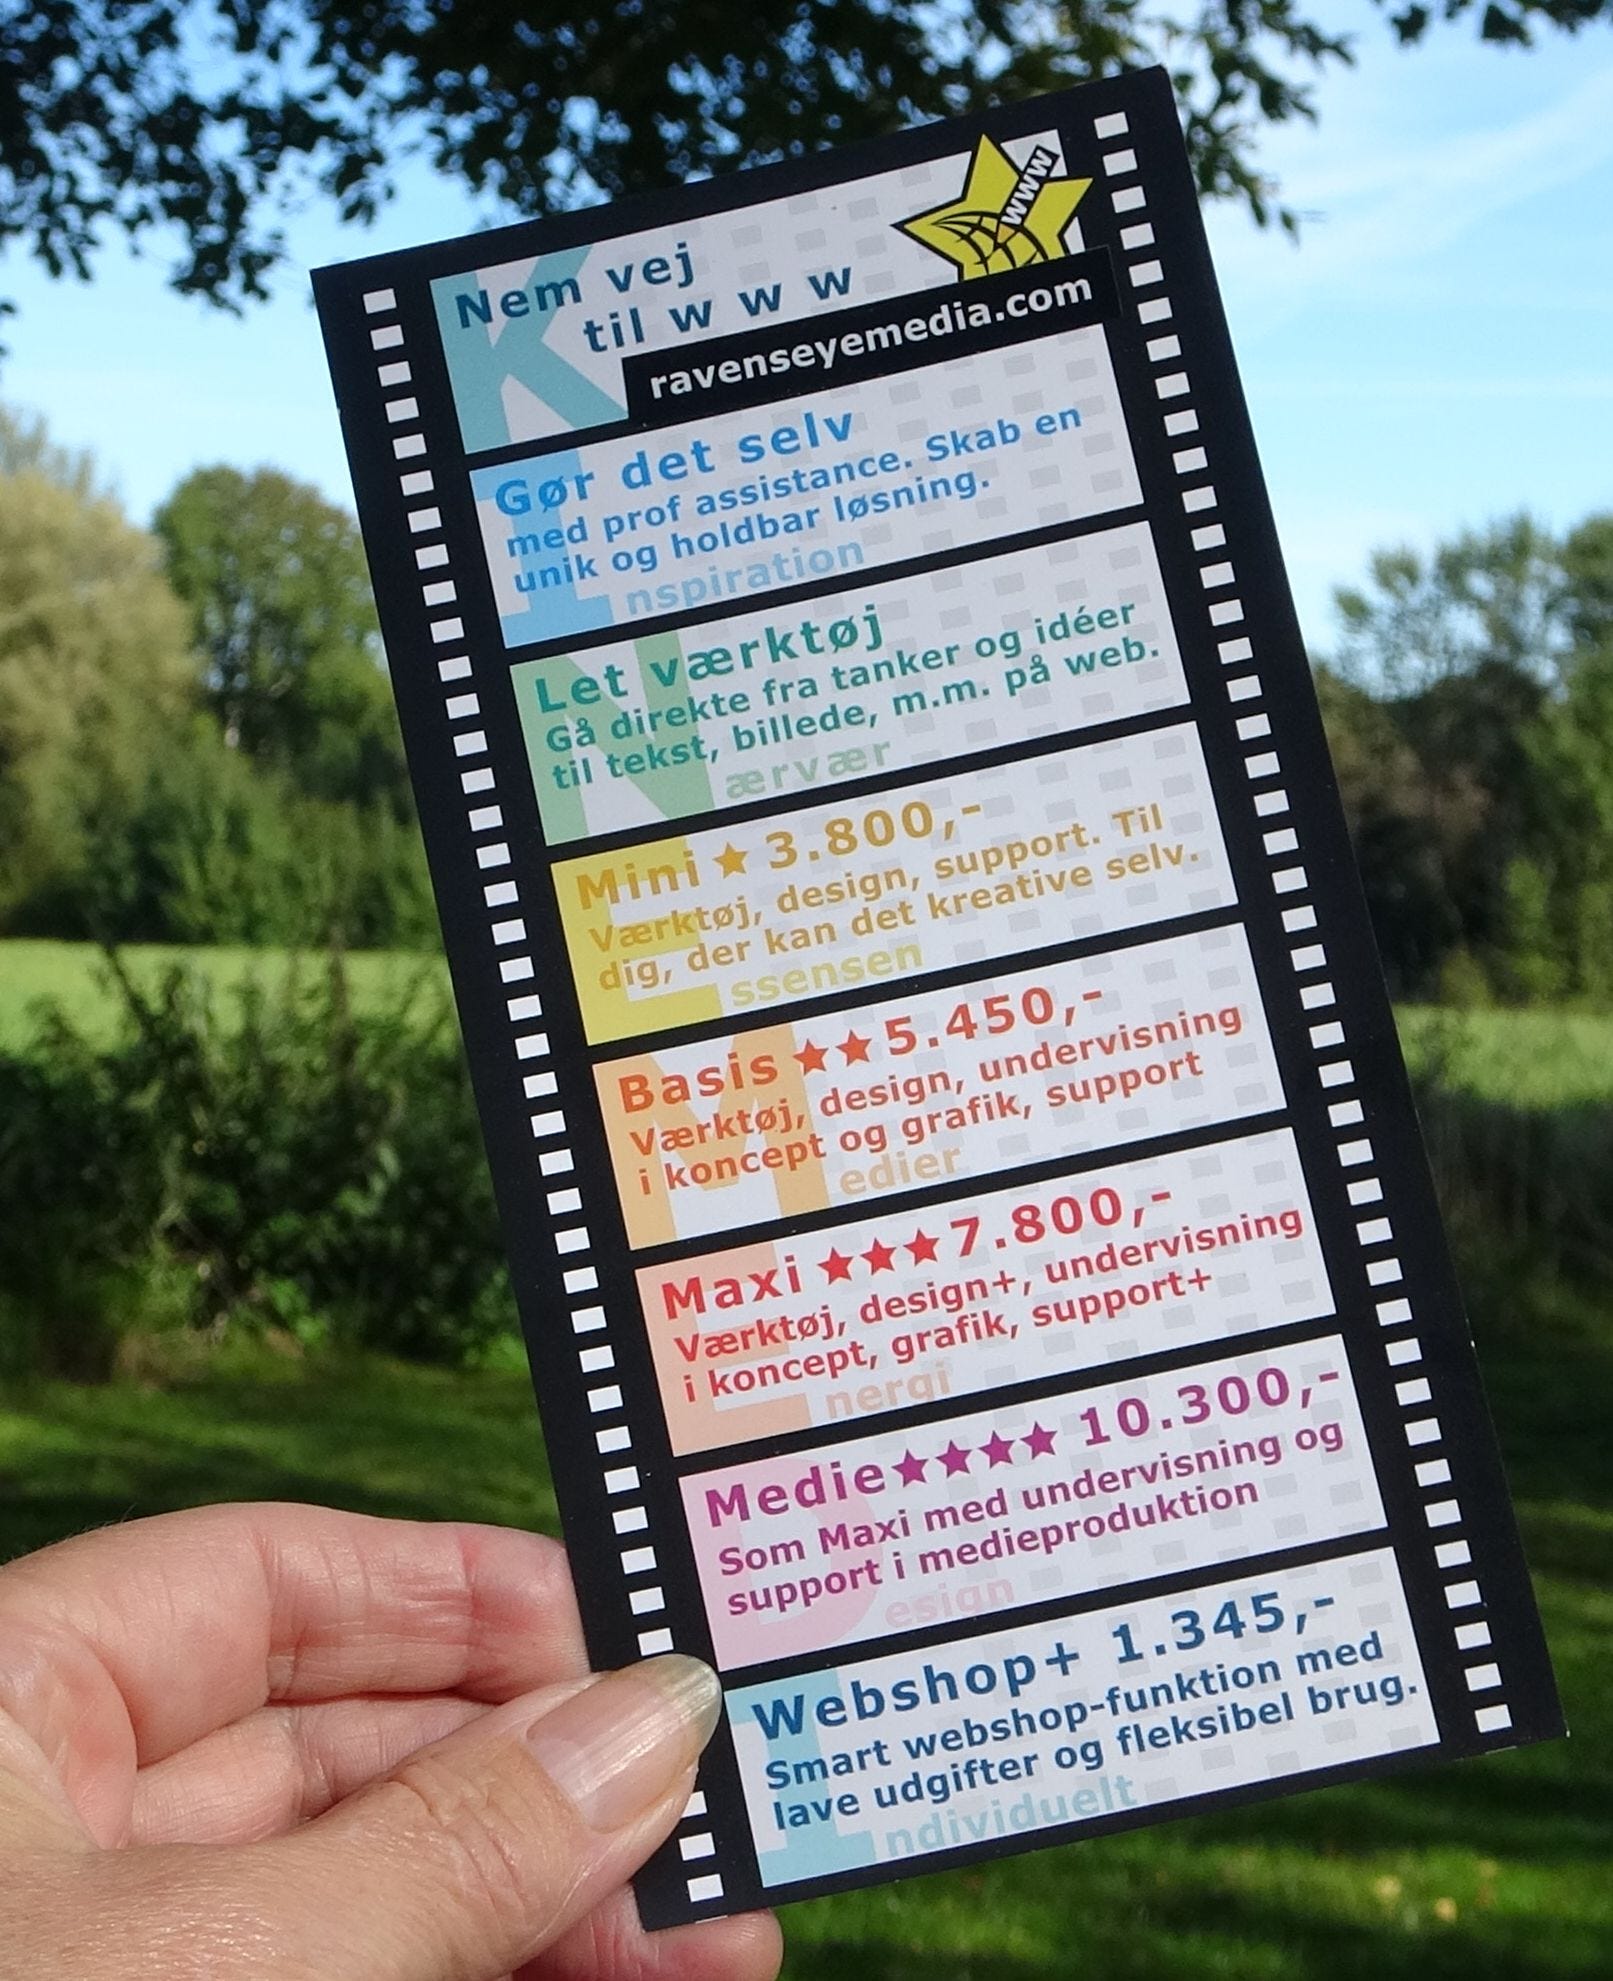 www
Nem vej
til w w w
ravenseyemedia.com
Gør det selv
med prof assistance. Skab en
unik og holdbar løsning.
Inspiration
Let værktøj
Gå direkte fra tanker og idéer
til tekst, billede, m.m. på web.
Nærvær
Mini ★ 3.800,-
Værktøj, design, support. Til
dig, der kan det kreative selv.
Essensen
Basis ★★ 5.450,-
Værktøj, design, undervisning
i koncept og grafik, support
Medier
Maxi ★★★ 7.800,-
Værktøj, design+, undervisning
i koncept, grafik, support+
Energi
Medie ★★★★ 10.300,-
Som Maxi med undervisning og
support i medieproduktion
Design
Webshop+ 1.345,-
Smart webshop-funktion med
lave udgifter og fleksibel brug.
Individuelt